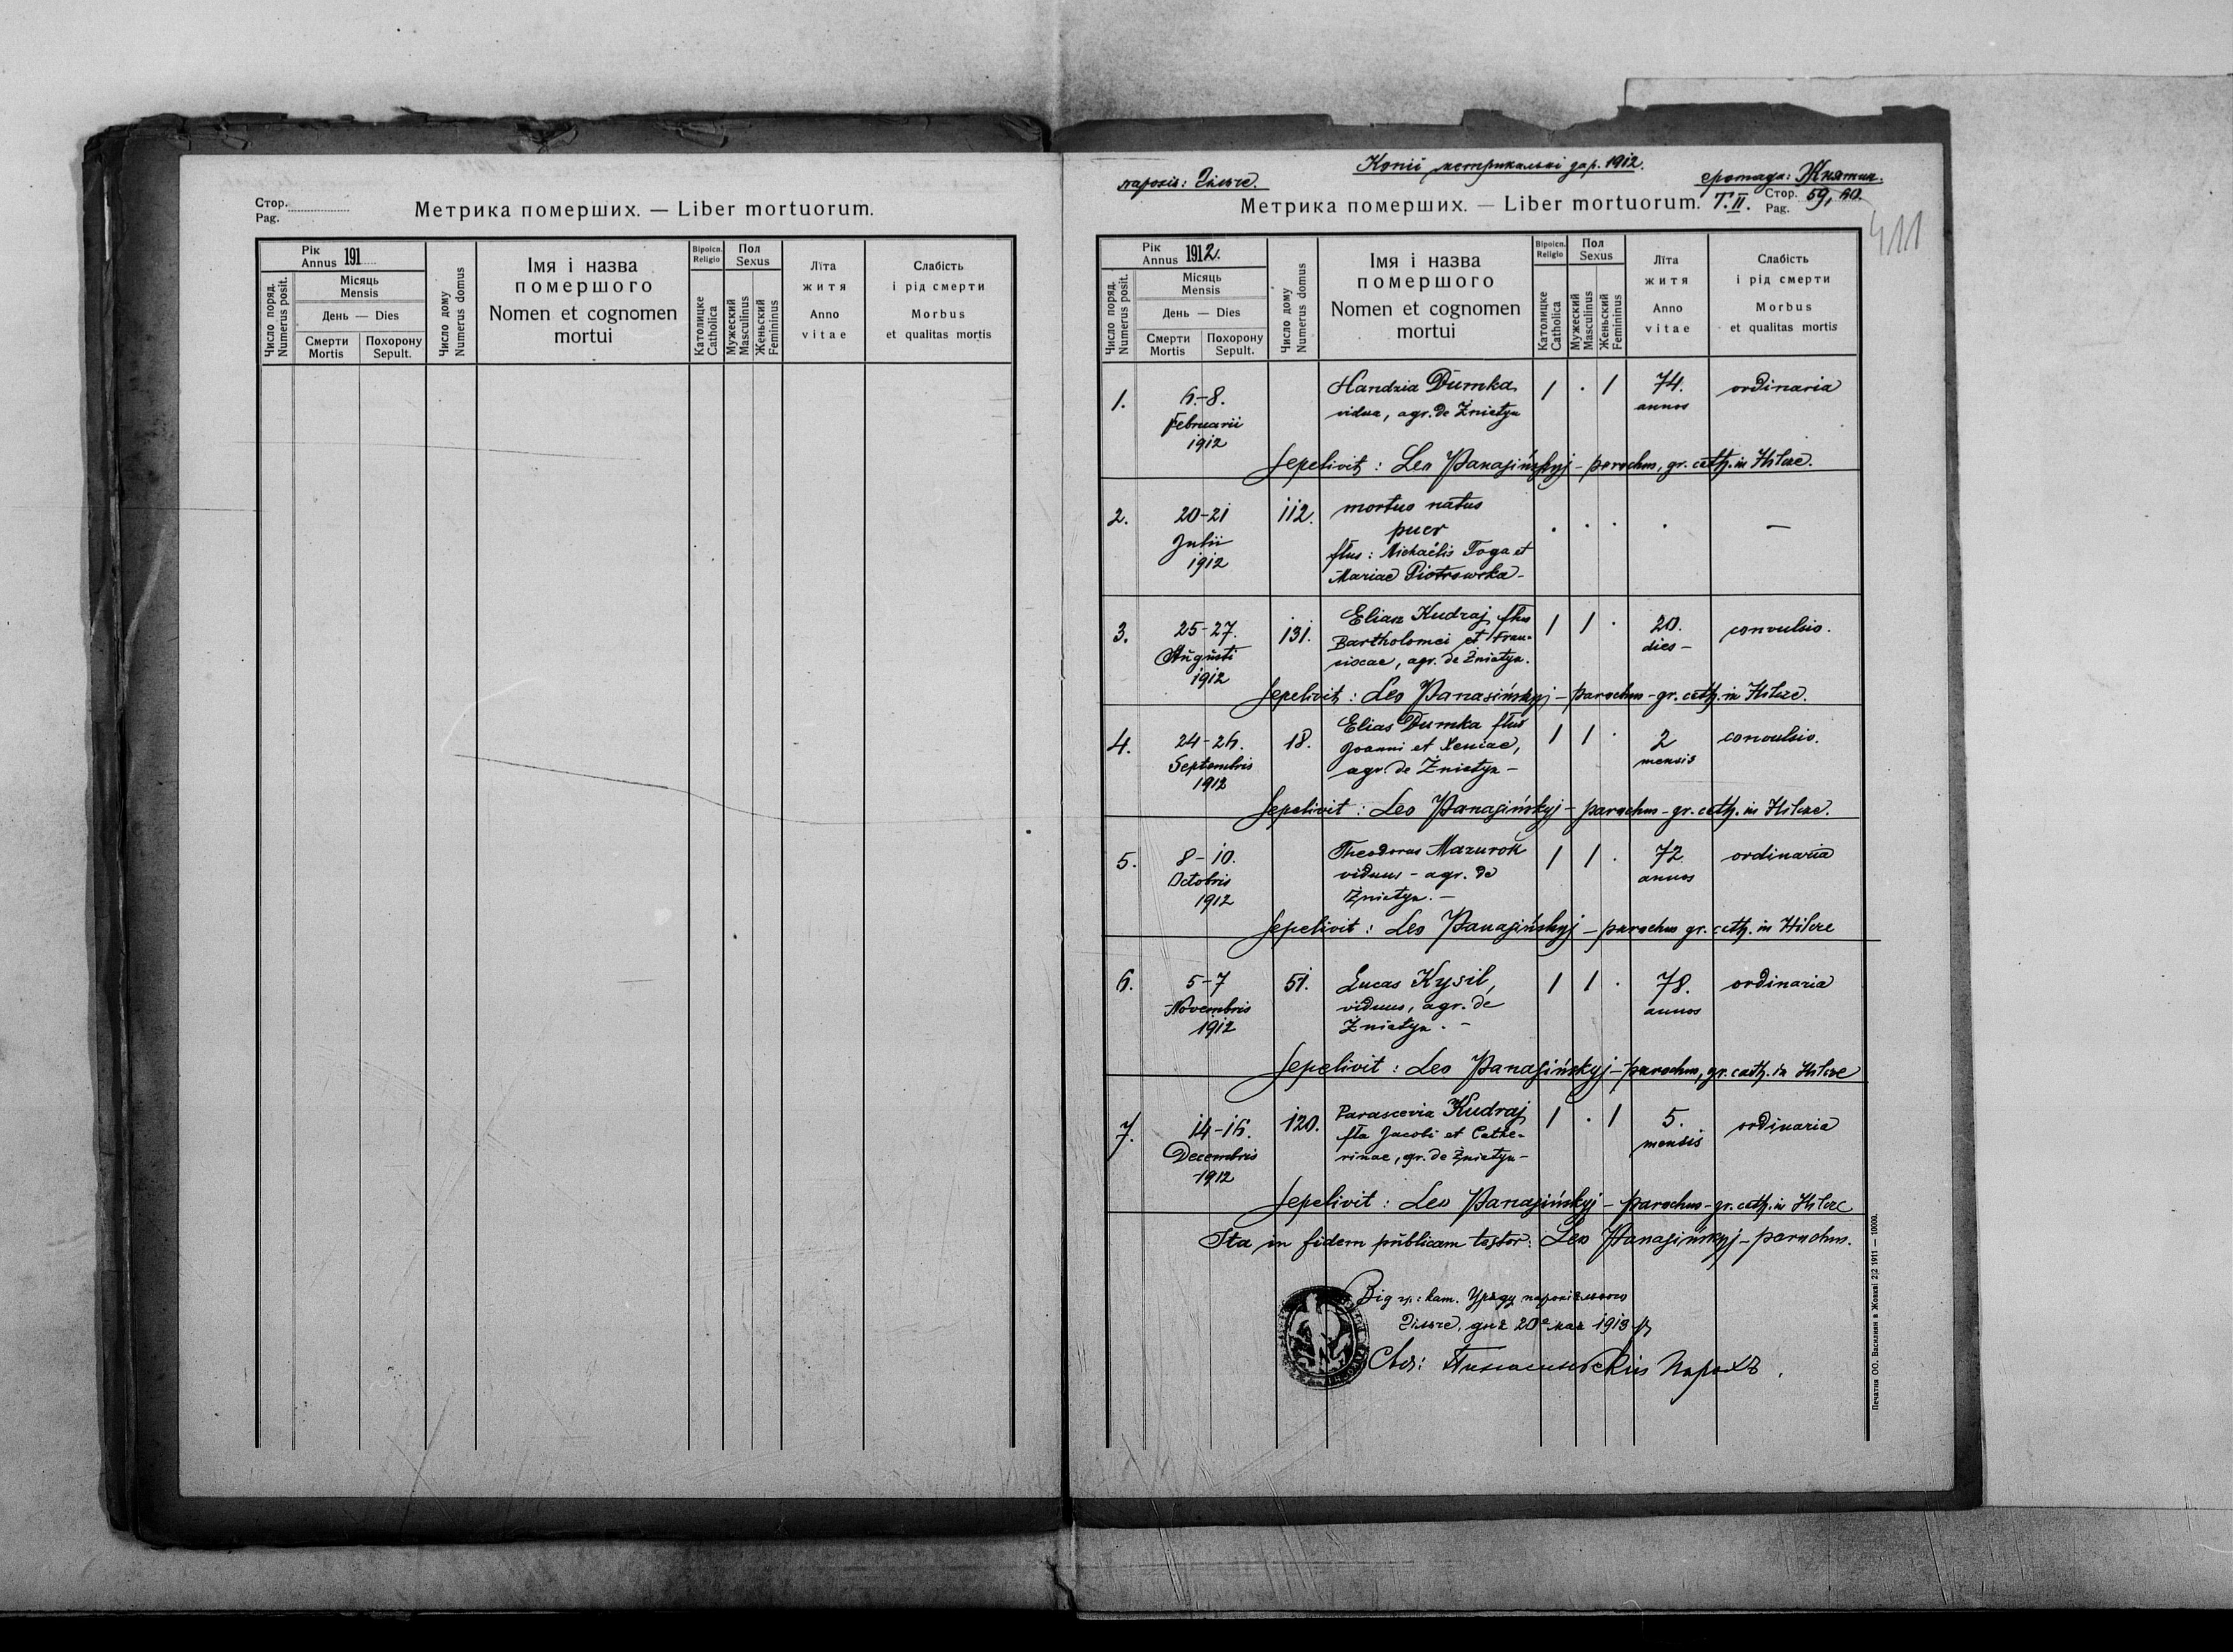 Стор.
Pag.
Метрика померших. — Liber mortuorum.
Рік
Annus 191
Число поряд.
Numerus posit.
Місяць
Mensis
День — Dies
Смерти
Mortis
Похорону
Sepult.
Число дому
Numerus domus
Імя і назва
помершого
Nomen et cognomen
mortui
Віроісп.
Religio
Католицке
Catholica
Пол
Sexus
Мужеский
Masculinus
Женьский
Femininus
Лїта
житя
Anno
vitae
Слабість
і рід смерти
Morbus
et qualitas mortis
Копії метрикальні за р. 1912.
парохія: Гільче.
громада: Жнятин.
Метрика померших. — Liber mortuorum. T. II.
Стор.
Pag. 59, 60.
411
Рік
Annus 1912.
Число поряд.
Numerus posit.
Місяць
Mensis
День — Dies
Смерти
Mortis
Похорону
Sepult.
Число дому
Numerus domus
Імя і назва
помершого
Nomen et cognomen
mortui
Віроісп.
Religio
Католицке
Catholica
Пол
Sexus
Мужеский
Masculinus
Женьский
Femininus
Лїта
житя
Anno
vitae
Слабість
і рід смерти
Morbus
et qualitas mortis
1. 6.-8. Handzia Dumka, 1 . 1 74. ordinaria
Februarii vidua, agr. de Żniatyn annos
1912
Sepelivit: Leo Panasińskyj - parochus, gr. cath. in Hilcze.
2. 20-21 112. mortuo natus . . . . —
Julii puer
1912 flus: Michaëlis Toga et
Mariae Piotrowska -
3. 25-27. 131. Elian Kudraj flus 1 1 . 20. convulsio.
Augusti Bartholomei et Fran- dies -
1912 ciscae, agr. de Żniatyn.
Sepelivit: Leo Panasińskyj - parochus - gr. cath. in Hilcze.
4. 24-26. 18. Elias Dumka flus 1 1 . 2 convulsio.
Septembris Joanni et Xeniae, mensis
1912 agr. de Żniatyn -
Sepelivit: Leo Panasińskyj - parochus - gr. cath. in Hilcze.
5. 8-10. Theodorus Mazurok 1 1 . 72 ordinaria
Octobris viduus - agr. de annos
1912 Żniatyn. -
Sepelivit: Leo Panasińskyj - parochus gr. cath. in Hilcze
6. 5-7 51. Lucas Kysil, 1 1 . 78. ordinaria
Novembris viduus, agr. de annos
1912 Żniatyn. -
Sepelivit: Leo Panasińskyj - parochus, gr. cath. in Hilcze
7. 14-16. 120. Parascevia Kudraj 1 . 1 5. ordinaria
Decembris fla Jacobi et Cathe- mensis
1912 rinae, gr. de Żniatyn -
Sepelivit: Leo Panasińskyj - parochus - gr. cath. in Hilcze
Ita in fidem publicam testor: Leo Panasińskyj - parochus.
Від гр: кат. Уряду парохіяльного
Гільче, дня 20 мая 1913 р.
Парохъ.
Печатня ОО. Василиян в Жовкві 2|2 1911 — 10000.